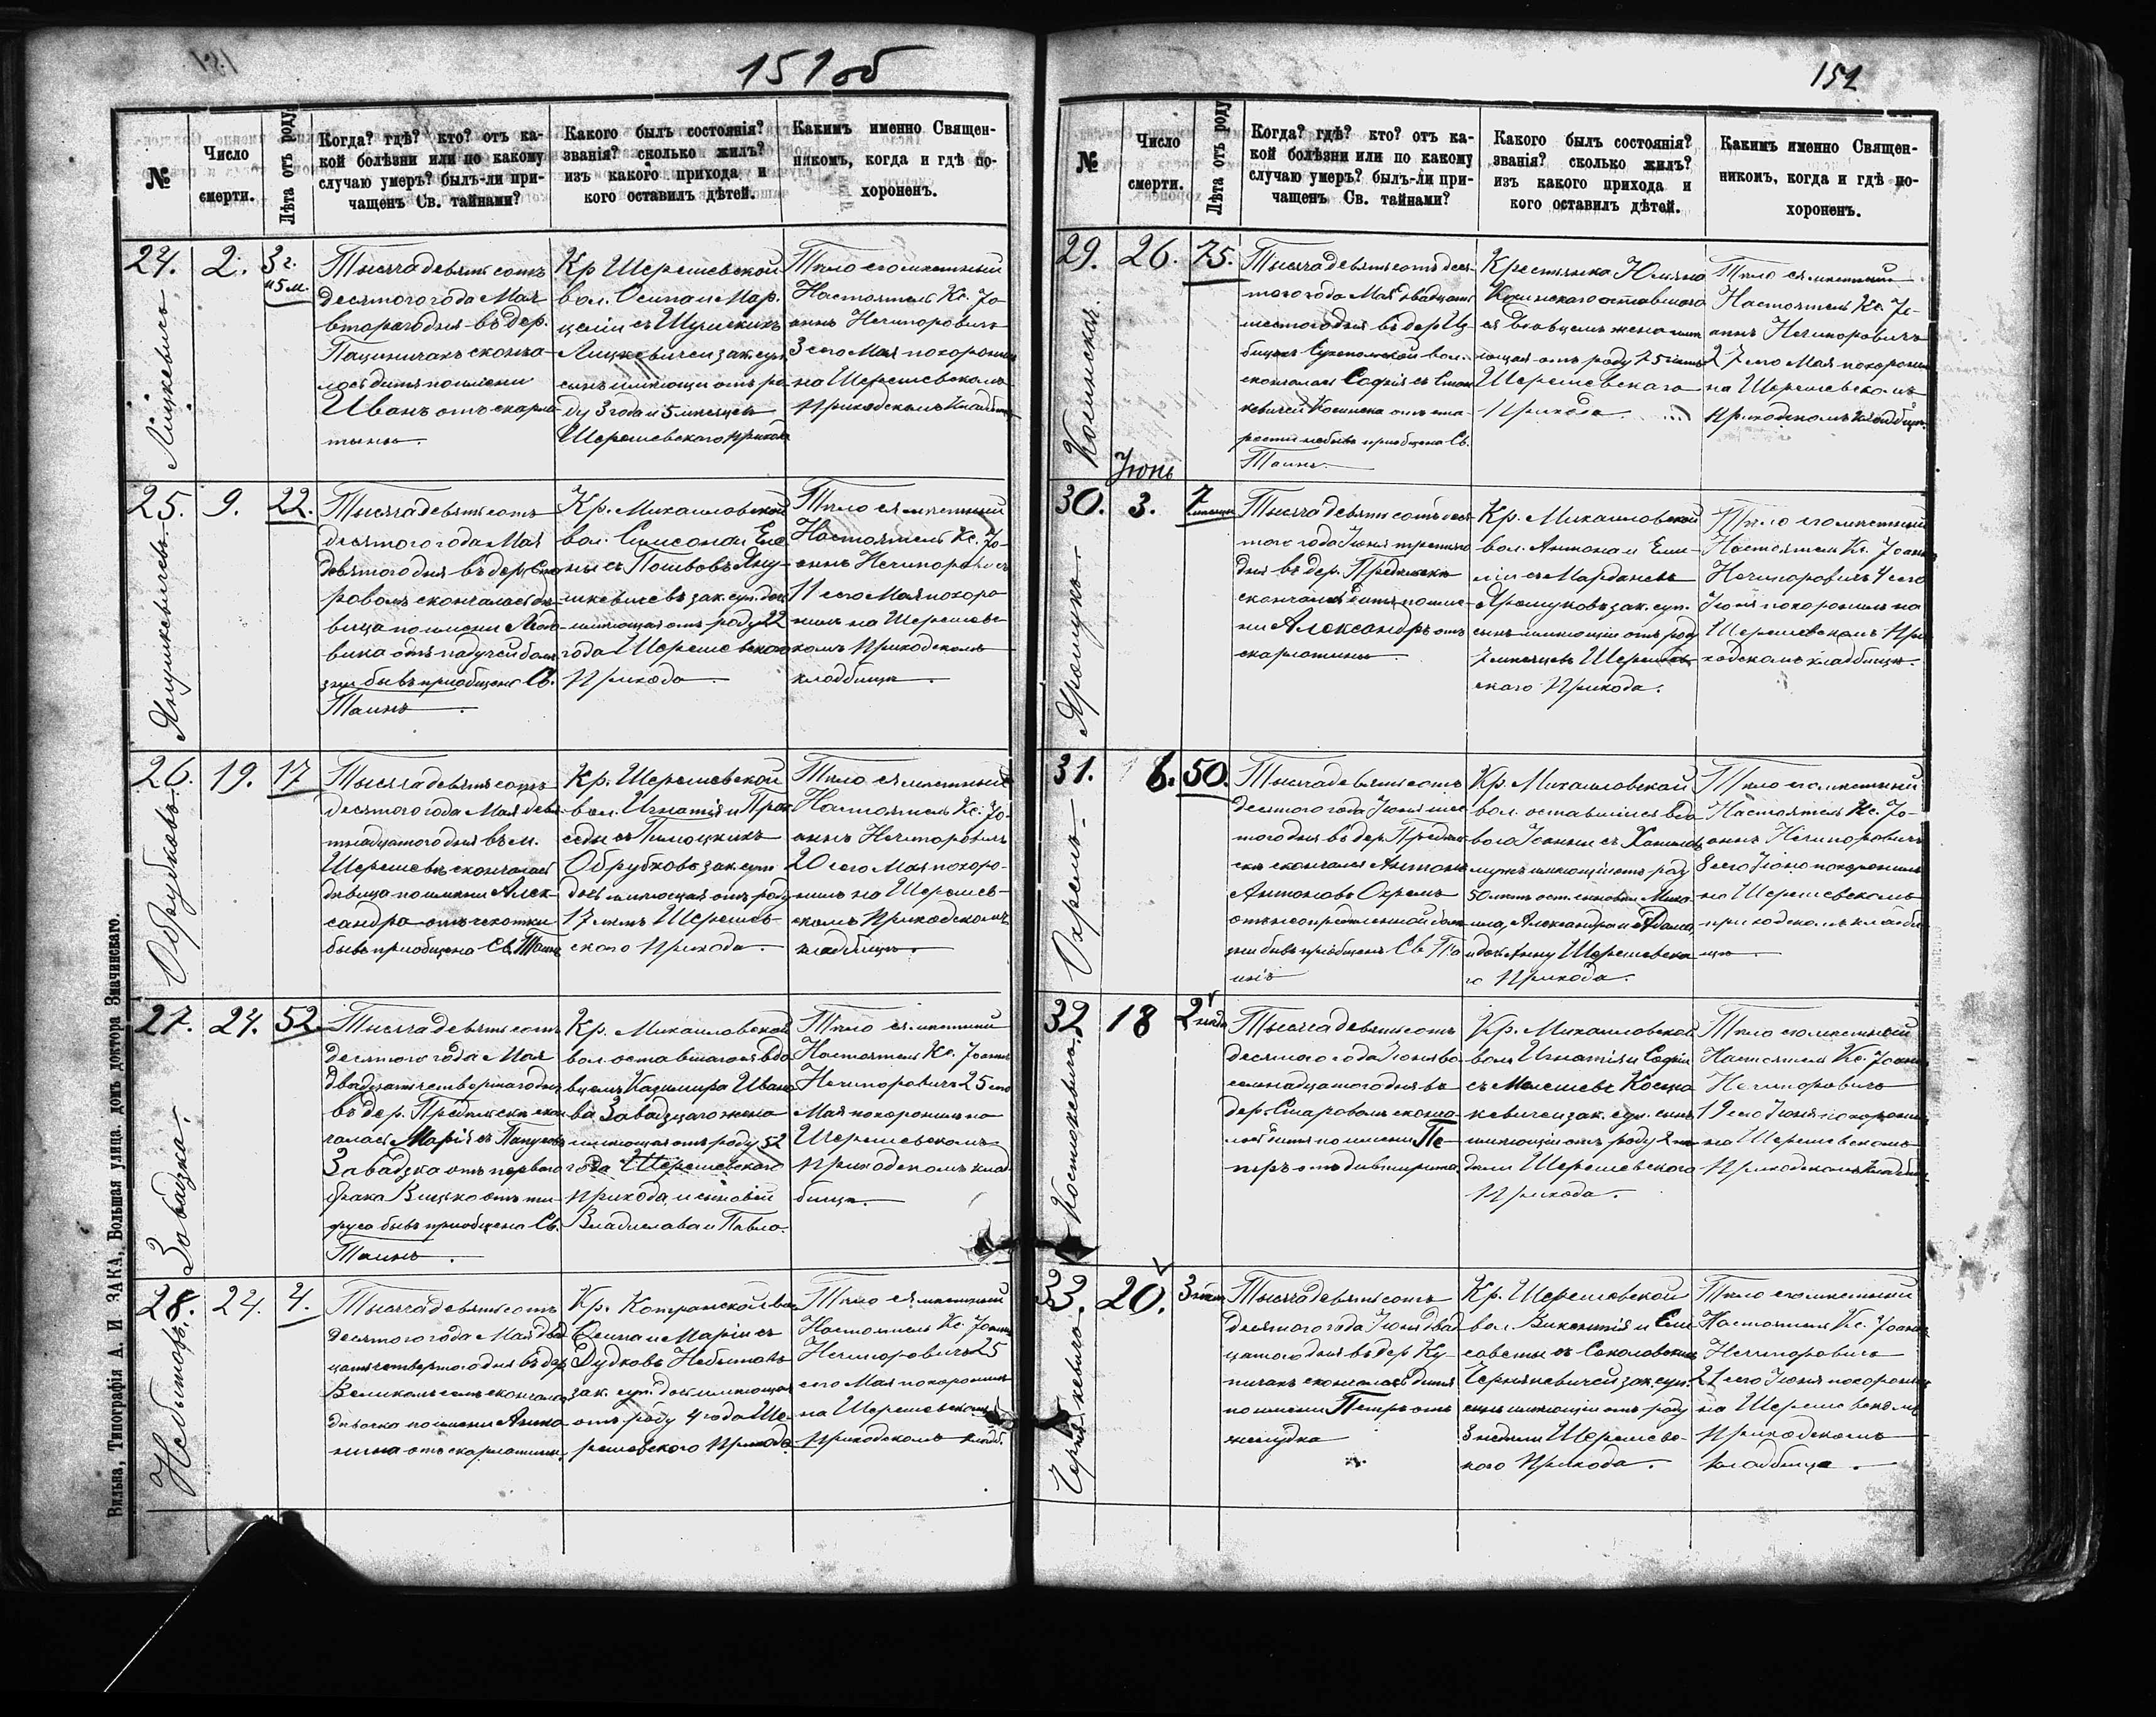 151об
№
Число
смерти.
Лѣта отъ роду
Когда? гдѣ? кто? отъ ка-
кой болѣзни или по какому
случаю умеръ? былъ-ли при-
чащенъ Св. тайнами?
Какого былъ состоянія?
званія? сколько жилъ?
изъ какого прихода и
кого оставилъ дѣтей.
Какимъ именно Священ-
никомъ, когда и гдѣ по-
хороненъ.
24.
Лицкевичъ
2.
3 г.
и 5 м.
Тысяча девятьсотъ
десятого года Мая
второго дня въ дер.
сконча-
лось дитя по имени
Иванъ отъ скарла-
тины.
Кр Шерешевской
вол. Осипа и Мар.
целіи съ Шумскихъ
Лицкевичей зак. суп.
сынъ имеющи отъ ро
ду 3 года и 5 месяцев
Шерешевского прихода
Тело его местный
Настоятель Кс. Іо-
аннъ Нечипоровичъ
3 сего Мая похоронилъ
на Шерешевскомъ
Приходскомъ кладбище
25.
Янушкевичъ
9.
22.
Тысяча девятьсотъ
десятого года Мая
девятого дня въ дер. Ста
роволь скончалась де-
вица по имени Людо
вика отъ падучей боле
зни бывъ приобщена Св.
Таинъ.
Кр. Михайловской
вол. Симеона и Еле
ны съ Пошвовъ Яну-
шкевичевъ зак. суп. дочь
имеющая отъ роду 22
года Шерешевского
Прихода.
Тело ея местный
Настоятель Кс. Іо-
аннъ Нечипоровичъ
11 сего Мая похоро
нилъ на Шерешевс
комъ Приходскомъ
кладбище.
26.
Обрубковъ
19.
17
Тысяча девятьсотъ
десятого года Мая девя
тнадцатого дня въ м.
Шерешевѣ скончалась
девица по имени Алек-
сандра отъ чахотки
бывъ приобщена Св. Таинъ
Кр. Шерешевской
вол. Игнатія и Прак
седы съ Пилоцкихъ
Обрубковъ зак. суп
дочь имеющая отъ роду
17 летъ Шерешев-
ского Прихода.
Тело ея местный
Настоятель Кс. Іо-
аннъ Нечипоровичъ
20 сего Мая похоро-
нилъ на Шерешев-
скомъ Приходскомъ
кладбище.
27.
Завадзка.
24.
52
Тысяча девятьсотъ
десятого года Мая
двадцать четвертаго дня
въ дер. Предѣльскѣ скон
чалась Марія съ
Завадзка отъ перваго
брака Вицко отъ ти
фуса бывъ приобщена Св.
Таинъ.
Кр. Михайловской
вол. оставшагося вдо
вцемъ Казимира Ивано
ва Завадзкаго жена
имеющая отъ роду 52
года Шерешевского
прихода и сыновей
Владислава и Павла.
Тело ея местный
Настоятель Кс. Іоаннъ
Нечипоровичъ 25 сего
Мая похоронилъ на
Шерешевскомъ
Приходскомъ клад
бище.
28.
Небытовъ.
24.
4.
Тысяча девятьсотъ
десятого года Мая двад
цать четвертого дня въ дер.
Великомъ селѣ скончалась
девочка по имени Анто
нина отъ скарлатины.
Кр. Котранской вол
Осипа и Маріи съ
Дудковъ Небытовъ
зак. суп. дочь имеющая
отъ роду 4 года Ше-
решевского Прихода.
Тело ея местный
Настоятель Кс. Іоаннъ
Нечипоровичъ 25
сего Мая похоронилъ
на Шерешевскомъ
Приходскомъ кладб.
Вильна, Типографія А. И ЗАКА, Большая улица, домъ доктора Значинскаго.
152
№
Число
смерти.
Лѣта отъ роду
Когда? гдѣ? кто? отъ ка-
кой болѣзни или по какому
случаю умеръ? былъ-ли при-
чащенъ Св. тайнами?
Какого былъ состоянія?
званія? сколько жилъ?
изъ какого прихода и
кого оставилъ дѣтей.
Какимъ именно Священ-
никомъ, когда и гдѣ по-
хороненъ.
29.
Косинская.
26.
75.
Тысяча девятьсотъ деся-
того года Мая двадцать
шестого дня въ дер
Сухопольской вол.
скончалась Софія съ Стан
кевичей Косинска отъ ста
рости небывъ приобщена Св.
Таинъ.
Крестьянка Юльяна
Косинского оставшого
ся вдовцемъ жена име
ющая отъ роду 75 летъ
Шерешевского
Прихода.
Тело ея местный
Настоятель Кс. Іо-
аннъ Нечипоровичъ
27 сего Мая похоронилъ
на Шерешевскомъ
Приходскомъ кладбище.
Іюнь
30.
Яромукъ
3.
7
месяцев
Тысяча девятьсотъ деся
того года Іюня третьяго
дня въ дер. Предѣльскѣ
скончалось дитя по име-
ни Александръ отъ
скарлатины.
Кр. Михайловской
вол. Антона и Еми-
ліи съ Марданевъ
Яромуковъ зак. суп.
сынъ имеющій отъ роду
7 месяцев Шерешев-
ского Прихода.
Тело его местный
Настоятель Кс. Іоаннъ
Нечипоровичъ 4 сего
Іюня похоронилъ на
Шерешевскомъ При
ходскомъ кладбище.
31.
Охремъ
6.
50.
Тысяча девятьсотъ
десятого года Іюня шес
того дня въ дер. Предѣль
скѣ скончался Антонъ
Антоновъ Охремъ
отъ неопределенной боле
зни бывъ приобщенъ Св. Та
инъ
Кр. Михайловской
вол. оставшейся вдо
вою Іоанны съ
мужъ имеющій отъ роду
50 летъ оставивъ сыновей Миха
ила, Александра и Адама
и дочь Анну Шерешевска
го Прихода.
Тело его местный
Настоятель Кс. Іо-
аннъ Нечипоровичъ
8 сего Іюня похоронилъ
на Шерешевскомъ
приходскомъ кладби
ще.
32
Костюкевичъ
18
2 недѣ
Тысяча девятьсотъ
десятого года Іюня во
семнадцатого дня въ
дер. Староволь сконча
лось дитя по имени Пе-
тръ отъ дифтерита.
Кр. Михайловской
вол. Игнатія и Софіи
съ Малешевъ Костю
кевичей зак. суп. сынъ
имеющій отъ роду 2 не
дѣли Шерешевского
Прихода.
Тело его местный
Настоятель Кс. Іоаннъ
Нечипоровичъ
19 сего Іюня похоронилъ
на Шерешевскомъ
Приходскомъ кладбище.
33.
Чернякевичъ
20.
3 нед
Тысяча девятьсотъ
десятого года Іюня двад
цатого дня въ дер. Ку-
пичахъ скончалось дитя
по имени Петръ отъ
желудка
Кр. Шерешевской
вол. Викентія и Ели
саветы съ Соколовскихъ
Чернякевичей зак. суп.
сынъ имеющій отъ роду
3 недѣли Шерешевс-
кого Прихода.
Тело его местный
Настоятель Кс. Іоаннъ
Нечипоровичъ
21 сего Іюня похоронилъ
на Шерешевскомъ
Приходскомъ
кладбище.